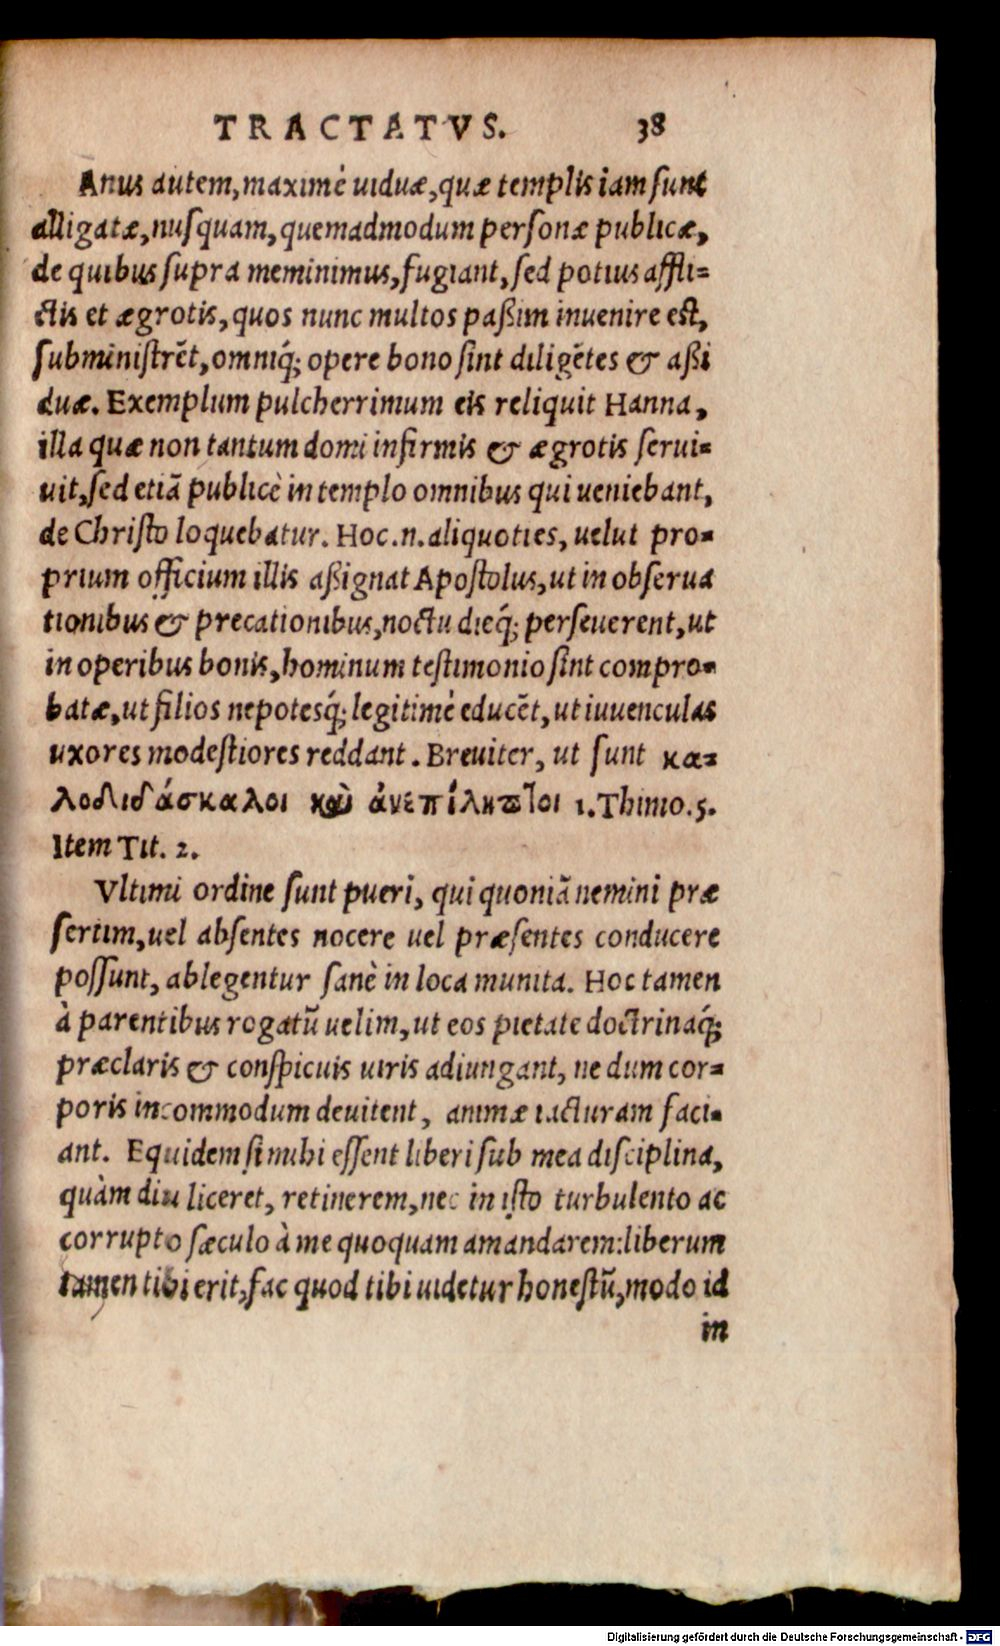 TRACTATVS. 38
Anus autem, maximè uiduæ, quæ templis iam sunt
alligatæ, nusquam, quemadmodum personæ publicæ,
de quibus supra meminimus, fugiant, sed potius affli=
ctis et ægrotis, quos nunc multos paßim inuenire est,
subministrẽt, omniq́; opere bono sint diligẽtes & aßi
duæ. Exemplum pulcherrimum eis reliquit Hanna,
illa quæ non tantum domi infirmis & ægrotis serui=
uit, sed etiã publicè in templo omnibus qui ueniebant,
de Christo loquebatur. Hoc .n. aliquoties, uelut pro=
prium officium illis aßignat Apostolus, ut in obserua
tionibus & precationibus, noctu dieq́; perseuerent, ut
in operibus bonis, hominum testimonio sint compro=
batæ, ut filios nepotesq́; legitimè educẽt, ut iuuenculas
uxores modestiores reddant. Breuiter, ut sunt κα=
λοδιδάσκαλοι καὶ ἀνεπίληπτοι 1. Thimo. 5.
Item Tit. 2.
Vltimi ordine sunt pueri, qui quoniã nemini præ
sertim, uel absentes nocere uel præsentes conducere
possunt, ablegentur sanè in loca munita. Hoc tamen
à parentibus rogatũ uelim, ut eos pietate doctrinaq́;
præclaris & conspicuis uiris adiungant, ne dum cor=
poris incommodum deuitent, animæ iacturam faci=
ant. Equidem si mihi essent liberi sub mea disciplina,
quàm diu liceret, retinerem, nec in isto turbulento ac
corrupto sæculo à me quoquam amandarem: liberum
tamen tibi erit, fac quod tibi uidetur honestũ, modo id
in
Digitalisierung gefördert durch die Deutsche Forschungsgemeinschaft - DFG